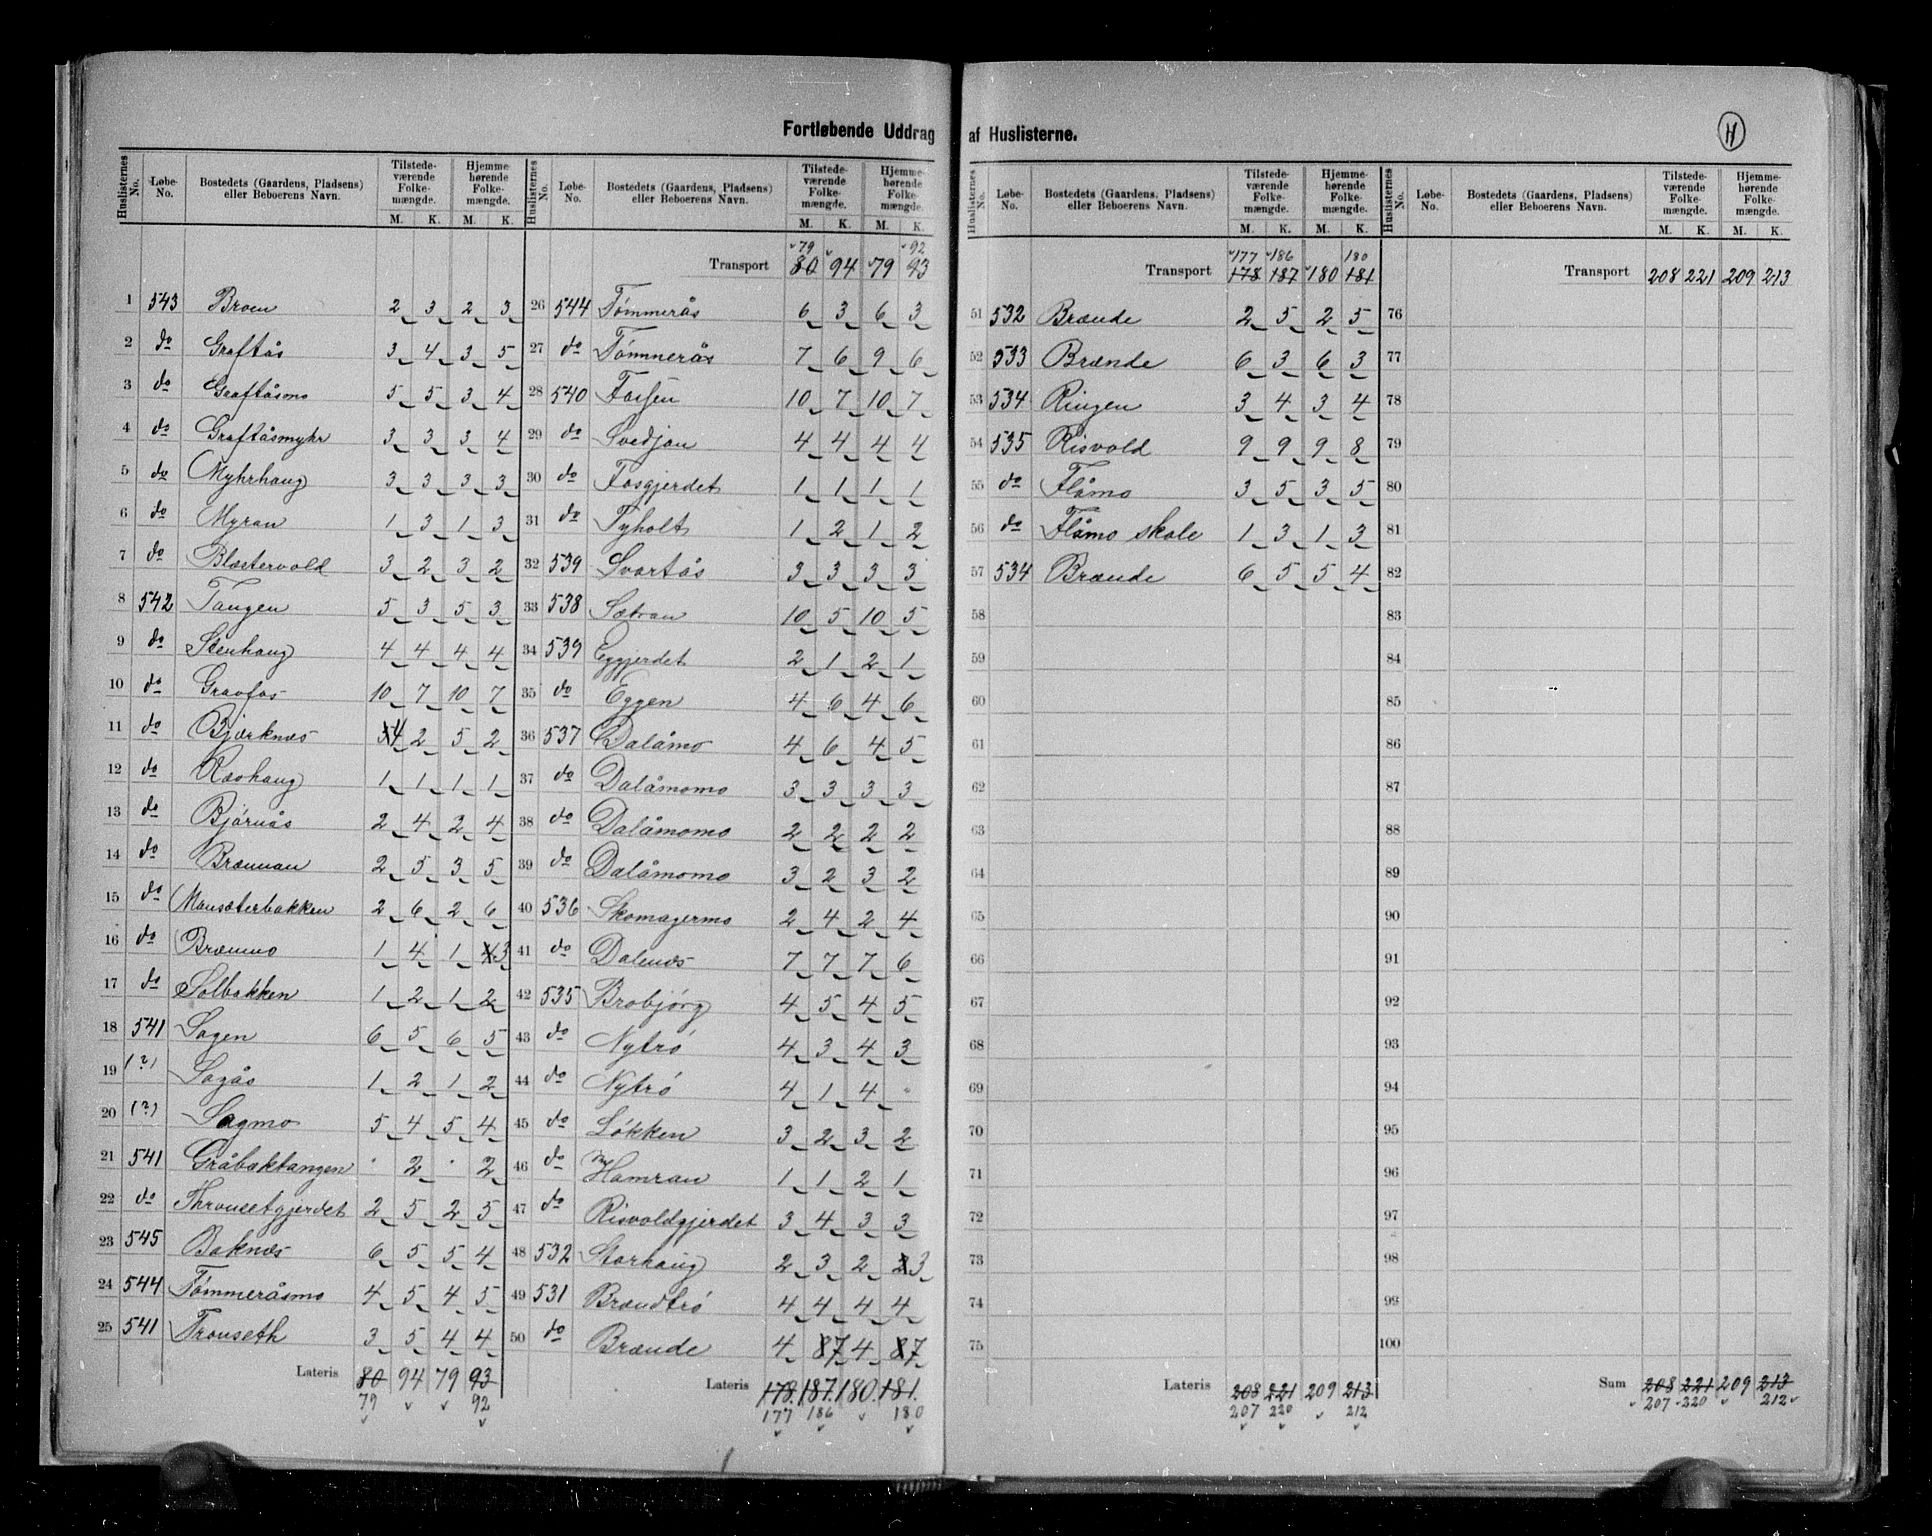 Fortløbende Uddrag af Huslisterne.
11
Huslisternes No. | Løbe-No. | Bostedets (Gaardens, Pladsens) eller Beboerens Navn. | Tilstedeværende Folkemængde. M. K. | Hjemmehørende Folkemængde. M. K.
1 543 Broen 2 3 2 3
2 do Graftås 3 4 3 5
3 do Graftåsmo 5 5 3 4
4 do Graftåsmyhr 3 3 3 4
5 do Myhrhaug 3 3 3 3
6 do Myran 1 3 1 3
7 do Blæstervold 3 2 3 2
8 542 Tangen 5 3 5 3
9 do Stenhaug 4 4 4 4
10 do Gravfos 10 7 10 7
11 do Bjørknæs 4 2 5 2
12 do Ravhaug 1 1 1 1
13 do Bjørnås 2 4 2 4
14 do Brænnan 2 5 3 5
15 do Mansæterbakken 2 6 2 6
16 do Brænmo 1 4 1 4 3
17 do Solbakken 1 2 1 2
18 541 Sagen 6 5 6 5
19 (?) Sagås 1 2 1 2
20 (?) Sagmo 5 4 5 4
21 541 Gråbæktangen " 2 " 2
22 do Thronsetgjerdet 2 5 2 5
23 545 Baknæs 6 5 5 4
24 544 Tømmeråsmo 4 5 4 5
25 541 Tronseth 3 5 4 4
Lateris 80 94 79 93
79 92
79 92
Transport 80 94 79 93
26 544 Tømmerås 6 3 6 3
27 do Tømmerås 7 6 9 6
28 540 Fossen 10 7 10 7
29 do Svedjan 4 4 4 4
30 do Fosgjerdet 1 1 1 1
31 do Tyholt 1 2 1 2
32 539 Svartås 3 3 3 3
33 538 Sætran 10 5 10 5
34 539 Eggjerdet 2 1 2 1
35 do Eggen 4 6 4 6
36 537 Dalåmo 4 6 4 5
37 do Dalåmomo 3 3 3 3
38 do Dalåmomo 2 2 2 2
39 do Dalåmomo 3 2 3 2
40 536 Skomagermo 2 4 2 4
41 do Dalenæs 7 7 7 6
42 535 Brobjørg 4 5 4 5
43 do Nytrø 4 3 4 3
44 do Nytrø 4 1 4 "
45 do Løkken 3 2 3 2
46 do Hamran 1 1 2 1
47 do Risvoldgjerdet 3 4 3 3
48 532 Storhaug 2 3 2 2 3
49 531 Brændtrø 4 4 4 4
50 do Brænde 4 8 7 4 8 7
Lateris 178. 187. 180. 181.
177 186 180
177 186 180
Transport 178 187 180 181
51 532 Brænde 2 5 2 5
52 533 Brænde 6 3 6 3
53 534 Ringen 3 4 3 4
54 535 Risvold 9 9 9 8
55 do Flåmo 3 5 3 5
56 do Flåmo skole 1 3 1 3
57 534 Brænde 6 5 5 4
58
59
60
61
62
63
64
65
66
67
68
69
70
71
72
73
74
75
Lateris 208 221 209 213
207 220 212
Transport 208 221 209 213
76
77
78
79
80
81
82
83
84
85
86
87
88
89
90
91
92
93
94
95
96
97
98
99
100
Sum 208 221 209 213
207 220 212